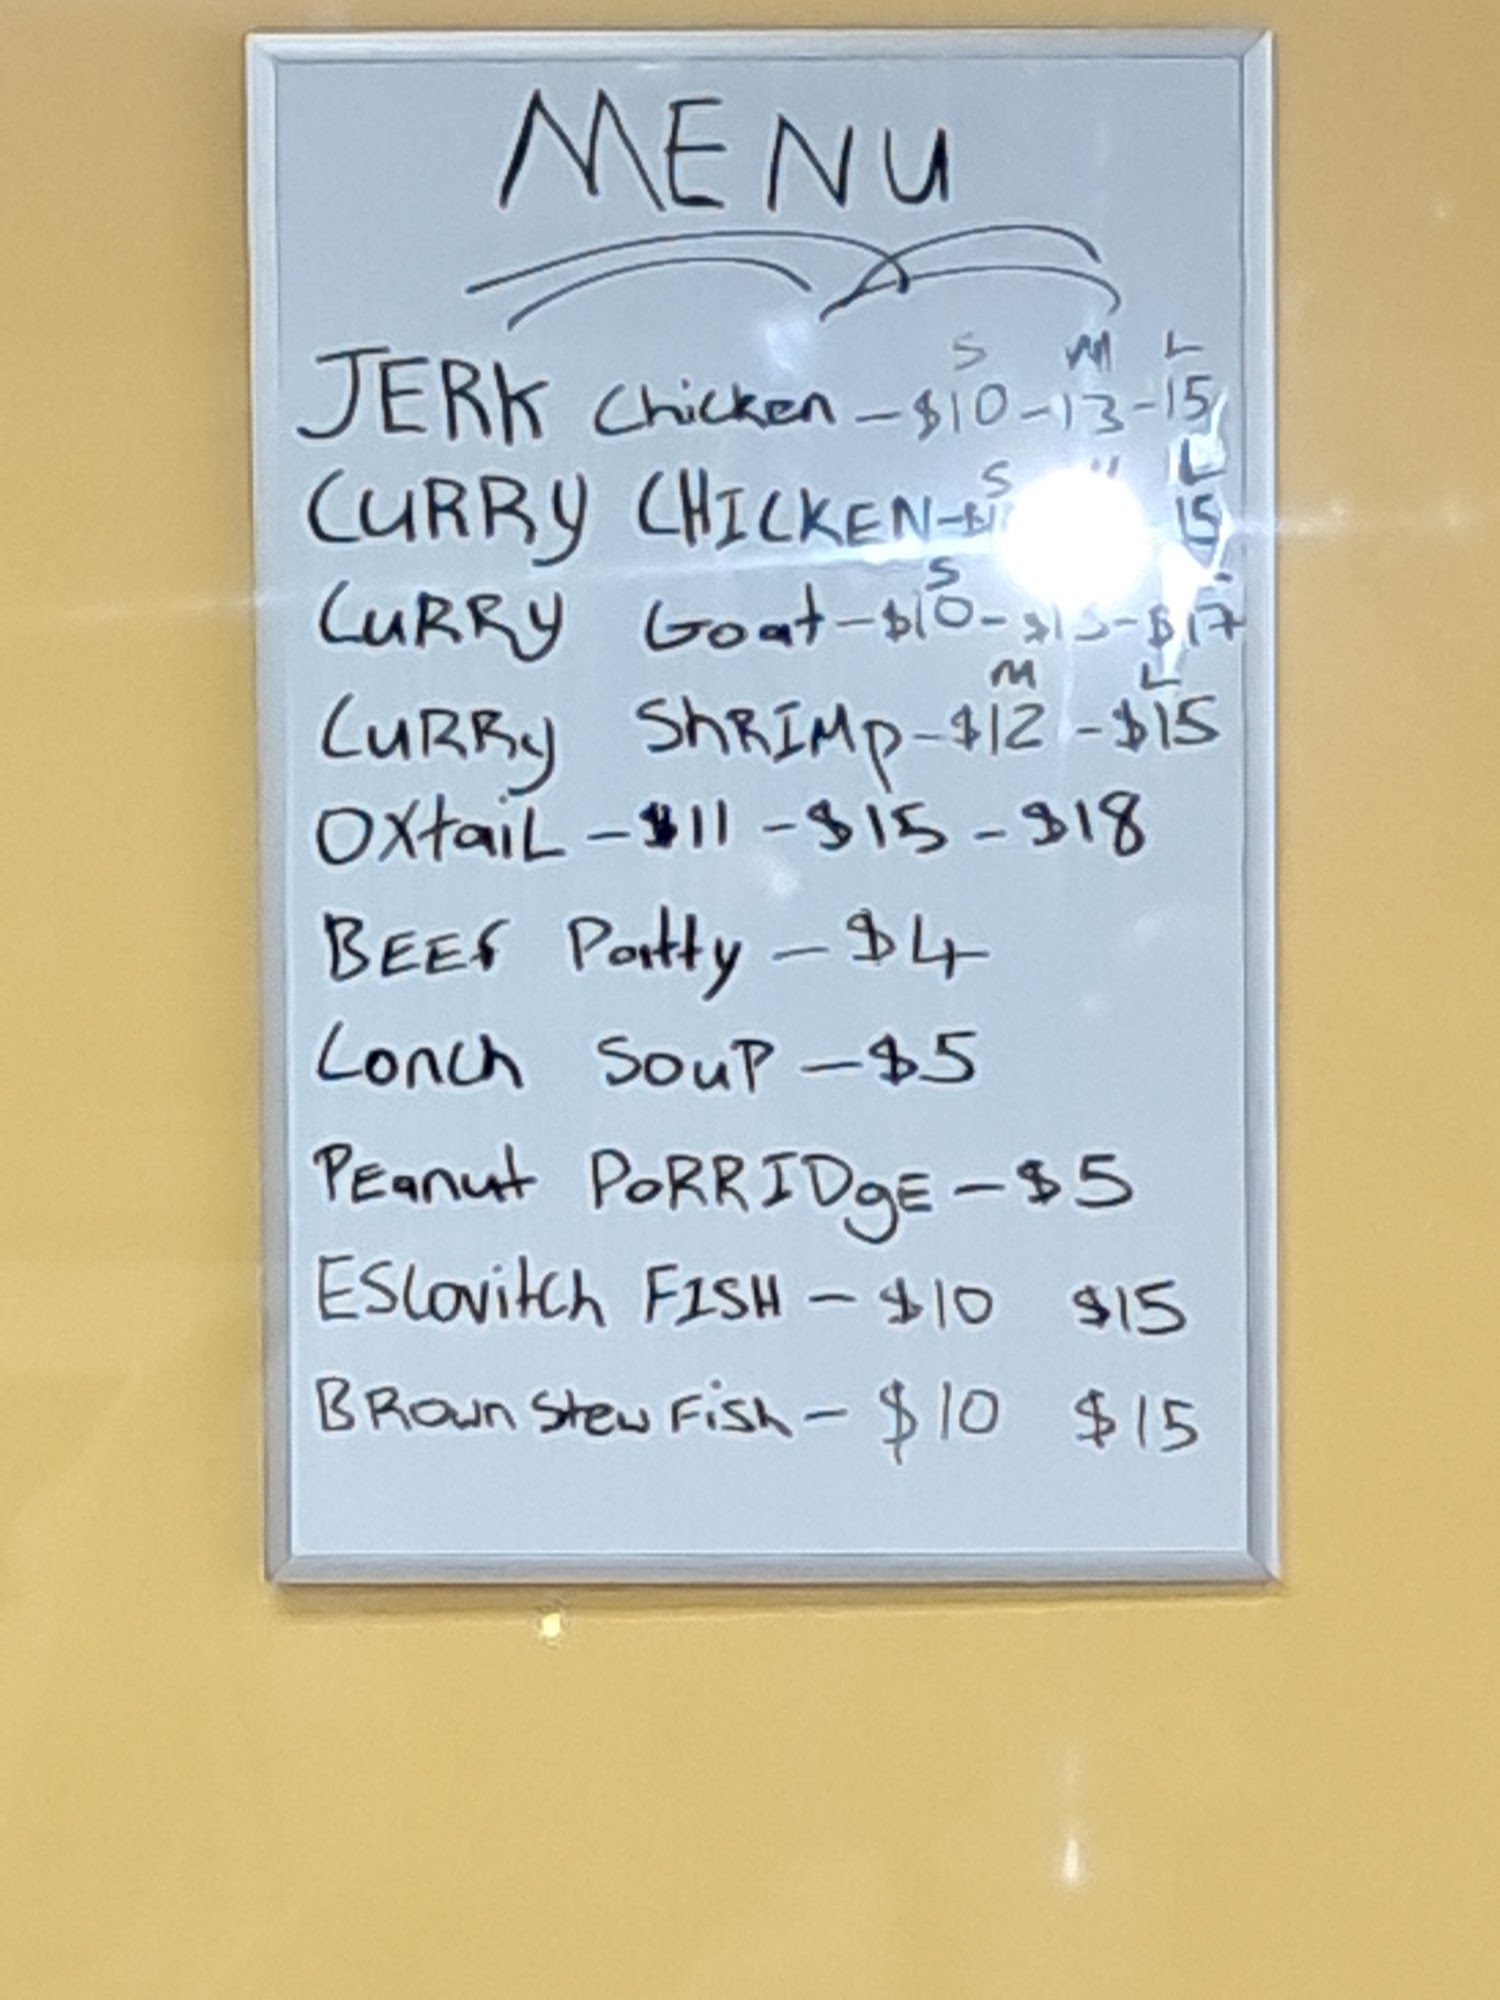 MENU
S M L
JERK Chicken - $10 - 13 - 15
S L
CURRY CHICKEN - 15
S
CURRY Goat - $10 - $15 - $17
M L
CURRy ShRIMp - $12 - $15
OxtaiL - $11 - $15 - $18
BEEf Patty - $4
Conch SouP - $5
PEanut PoRRIDgE - $5
ESCovitch FISH - $10 $15
BRown Stew Fish - $10 $15